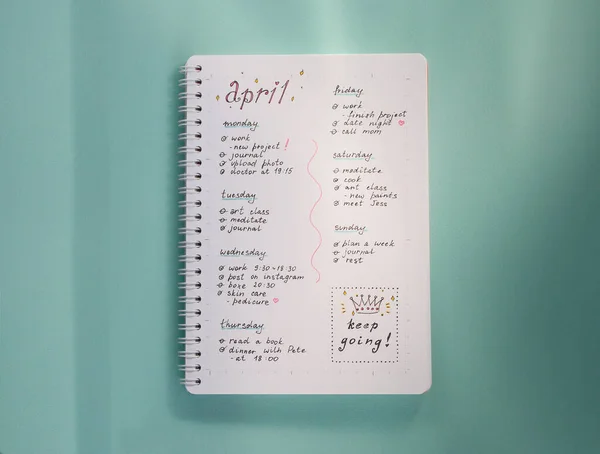 april
monday
work
- new project!
journal
upload photo
doctor at 19:15
tuesday
art class
meditate
journal
wednesday
work 9:30-18:30
post on instagram
boxe 20:30
skin care
- pedicure
thursday
read a book
dinner with Pete
- at 18:00
friday
work
- finish project
date night
call mom
saturday
meditate
cook
art class
- new paints
meet Jess
sunday
plan a week
journal
rest
keep
going!